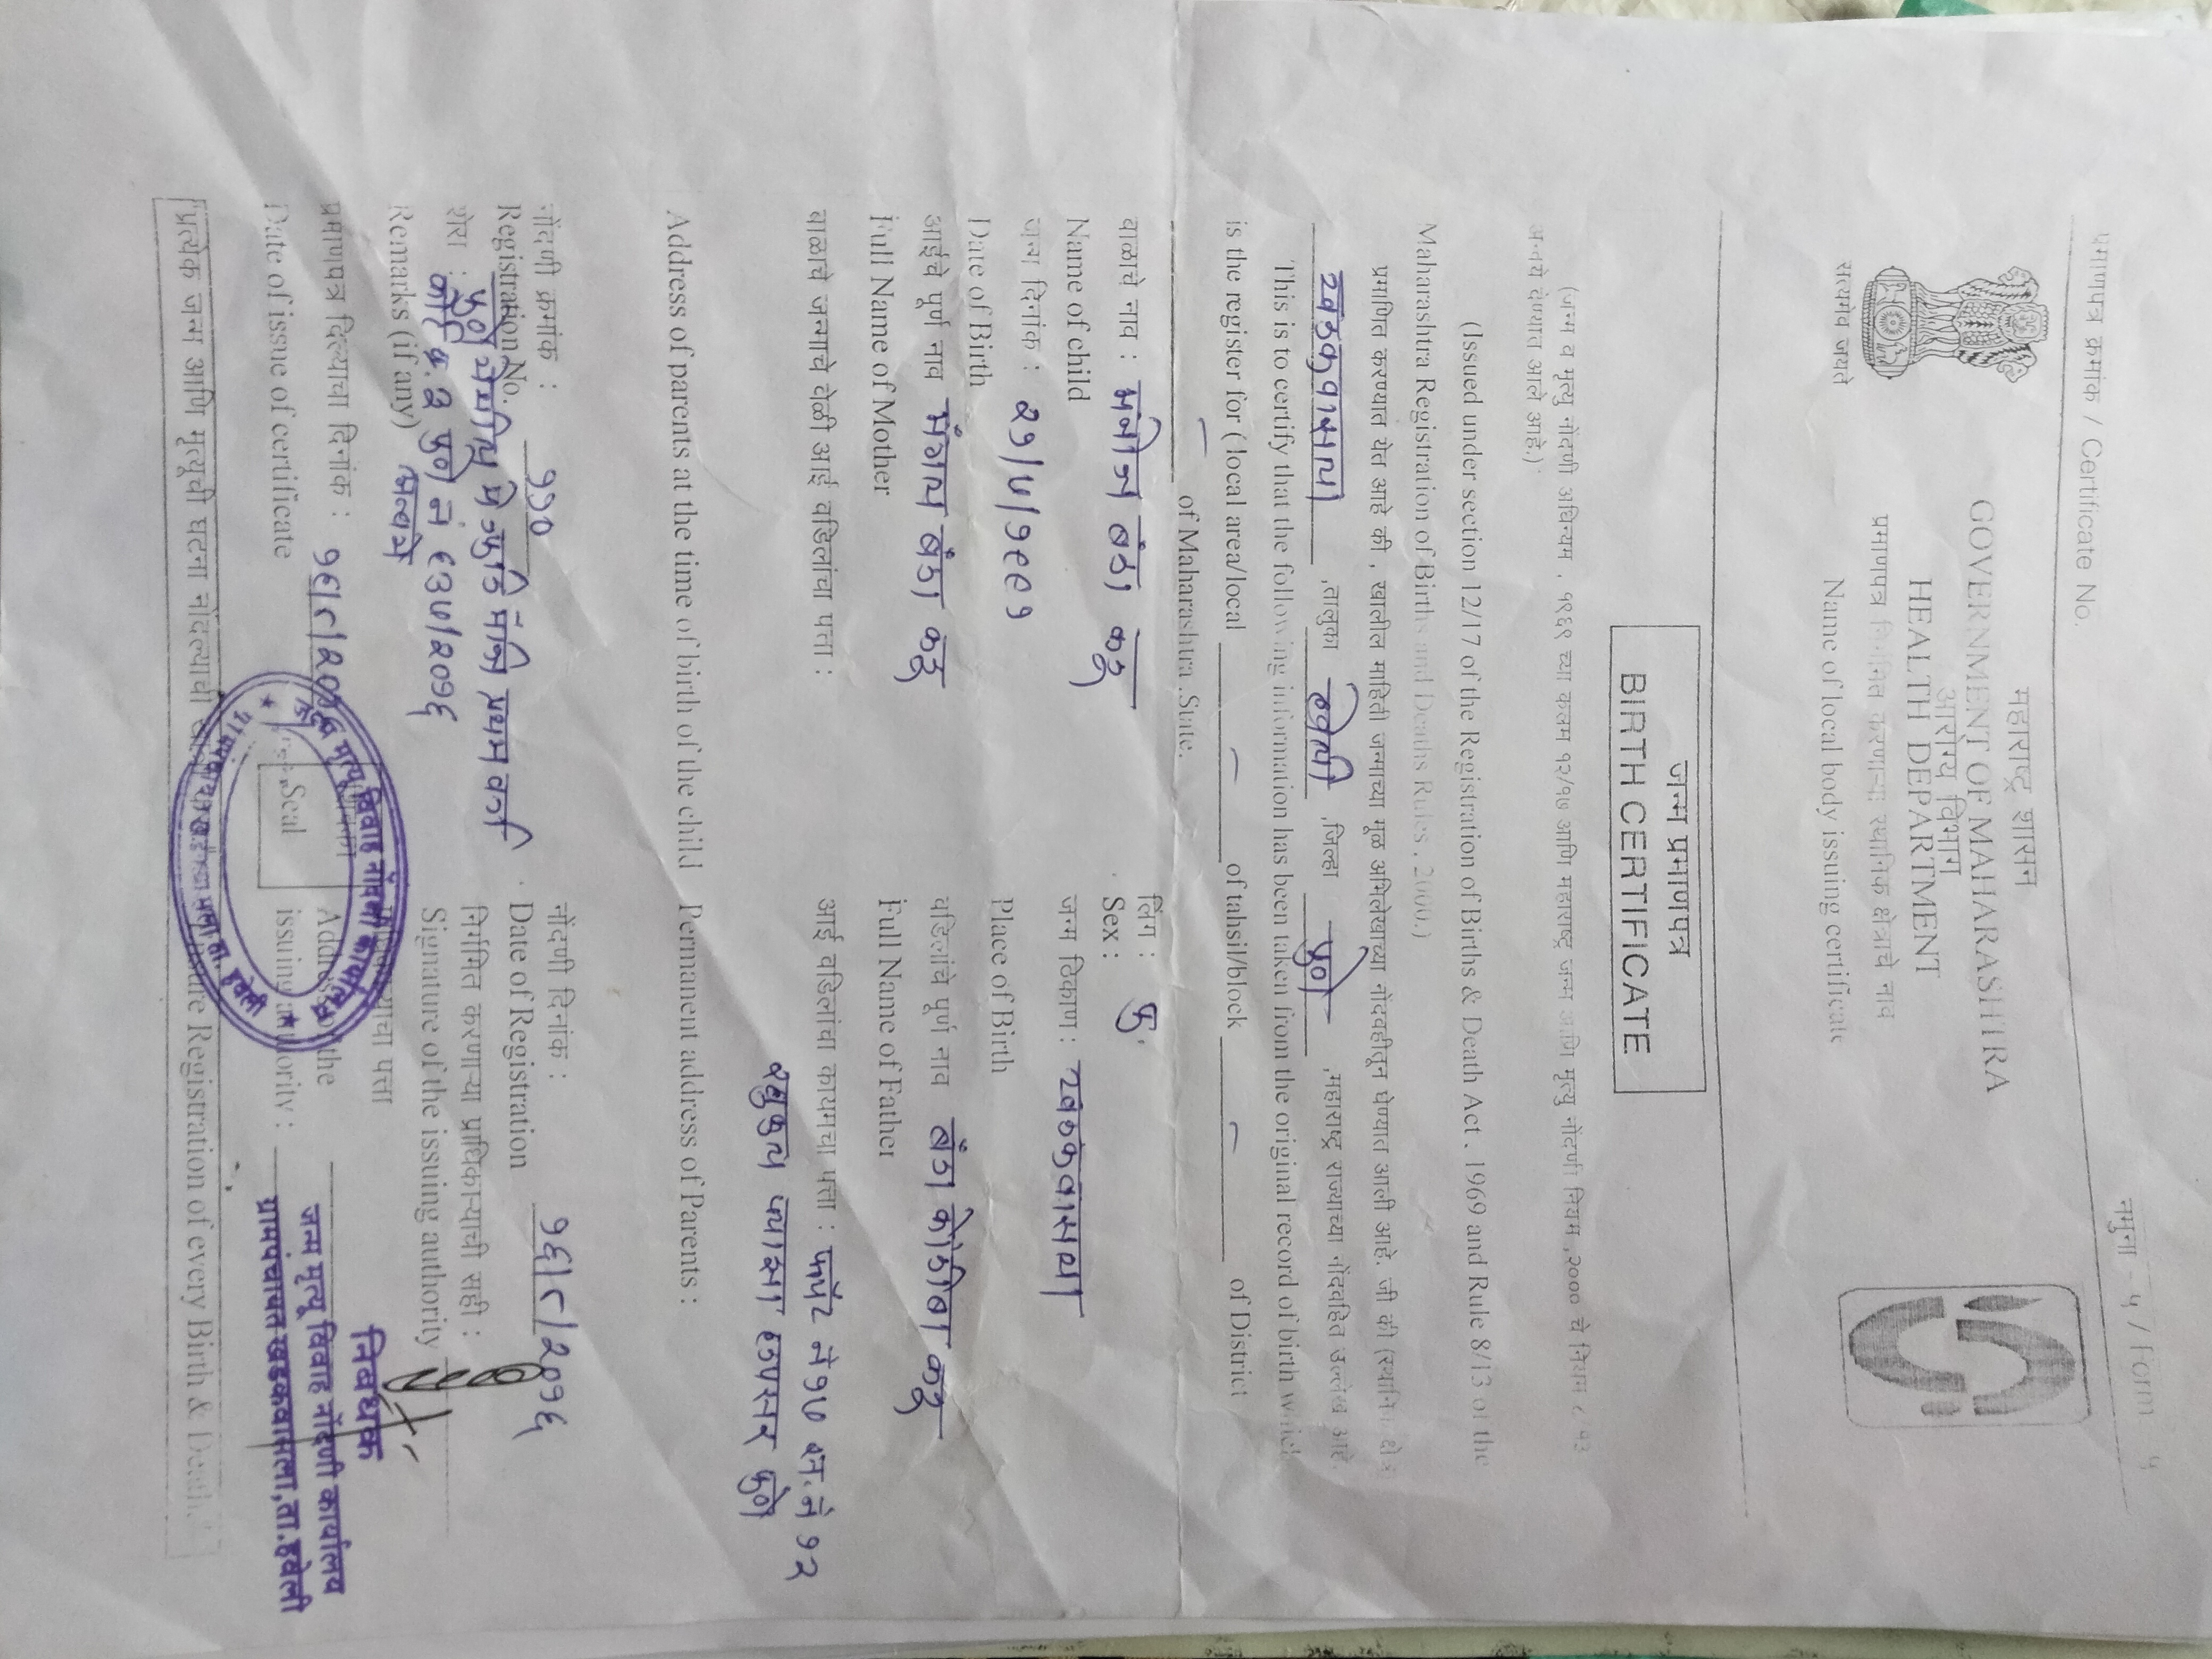 नमुना - ५ / Form ५
प्रमाणपत्र क्रमांक / Certificate No.
महाराष्ट्र शासन
GOVERNMENT OF MAHARASHTRA
आरोग्य विभाग
HEALTH DEPARTMENT
सत्यमेव जयते
प्रमाणपत्र निर्गमित करणाऱ्या स्थानिक क्षेत्राचे नाव
Name of local body issuing certificate
जन्म प्रमाणपत्र
BIRTH CERTIFICATE
(जन्म व मृत्यु नोंदणी अधिनियम , १९६९ च्या कलम १२/१७ आणि महाराष्ट्र जन्म आणि मृत्यु नोंदणी नियम ,२००० चे नियम ८/१३
अन्वये देण्यात आले आहे.)
(Issued under section 12/17 of the Registration of Births & Death Act . 1969 and Rule 8/13 of the
Maharashtra Registration of Births and Deaths Rules , 2000.)
प्रमाणित करण्यात येत आहे की , खालील माहिती जन्माच्या मूळ अभिलेखाच्या नोंदवहीतून घेण्यात आली आहे. जी की (स्थानिक क्षेत्र
खडकवासला ,तालुका हवेली ,जिल्हा पुणे ,महाराष्ट्र राज्याच्या नोंदवहित उल्लेख आहे.
This is to certify that the following information has been taken from the original record of birth which
is the register for ( local area/local of tahsil/block of District
of Maharashtra .State.
बाळाचे नाव : मनोज बंडा कडू लिंग : पु.
Name of child Sex :
जन्म दिनांक : २१/५/१९९१ जन्म ठिकाण : खडकवासला
Date of Birth Place of Birth
आईचे पूर्ण नाव मंगल बंडा कडू वडिलांचे पूर्ण नाव बंडा कोंडीबा कडू
Full Name of Mother Full Name of Father
बाळाचे जन्माचे वेळी आई वडिलांचा पत्ता : आई वडिलांचा कायमचा पत्ता : फ्लॅट नं १५ स.नं १२
रघुकुल पुणे
Address of parents at the time of birth of the child Permanent address of Parents :
नोंदणी क्रमांक : ११० नोंदणी दिनांक : १६/८/२०१६
Registration No. Date of Registration
शेरा : प्रथम वर्ग
कोर्ट क्र.२ पुणे नं ६३५/२०१६
निर्गमित करणाऱ्या प्राधिकाऱ्याची सही :
Remarks (if any) Signature of the issuing authority
प्रमाणपत्र दिल्याचा दिनांक : १६/८/२०१६ पत्ता
Date of issue of certificate Seal Address of the
issuing authority :
निबंधक
जन्म मृत्यू विवाह नोंदणी कार्यालय
ग्रामपंचायत खडकवासला,ता.हवेली
जन्म मृत्यू विवाह नोंदणी कार्यालय
ग्रामपंचायत खडकवासला ता. हवेली
प्रत्येक जन्म आणि मृत्यूची घटना नोंदल्याची Registration of every Birth & Death.